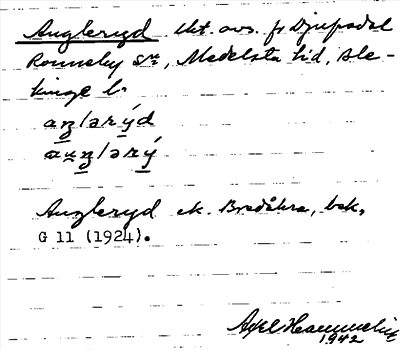 Augleryd tkt. avs. fr Djupadal
Ronneby sn, Medelsta hd, Ble-
kinge l.
aŋlərýd
aụŋlərý
Augleryd ek. Bredåkra, bek.
G 11 (1924).
Axel Hammelin
1942